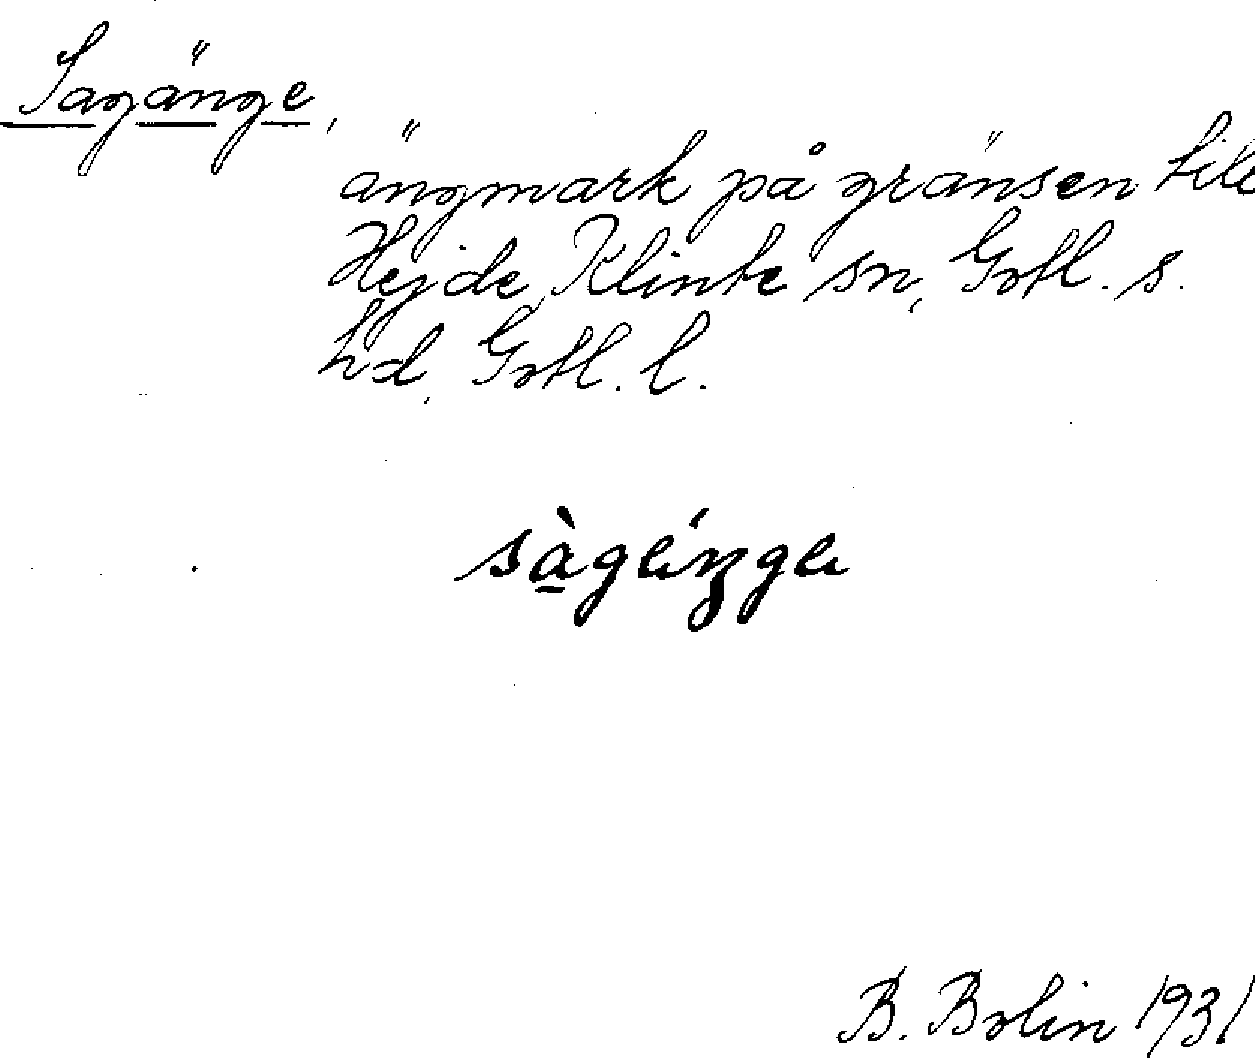 Sagänge,
ängmark på gränsen till
Hejde, Klinte sn, Gotl. s.
hd, Gotl. l.
B. Bolin 1931